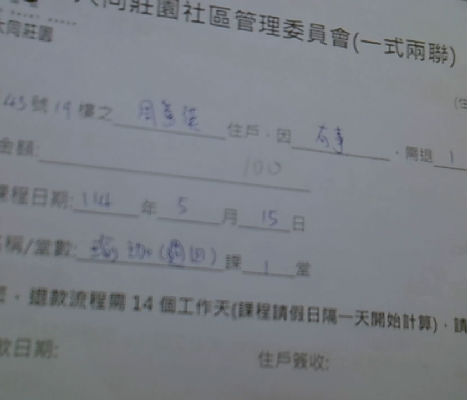 大同莊園社區管理委員會(一式兩聯)
大同莊園
45號19樓之 住戶，因 有事 ，需退 1
金額: 100
課程日期: 114 年 5 月 15 日
名稱/堂數: 瑜珈(週四) 課 1 堂
退款流程需 14 個工作天(課程請假日隔一天開始計算)，請
款日期: 住戶簽收: